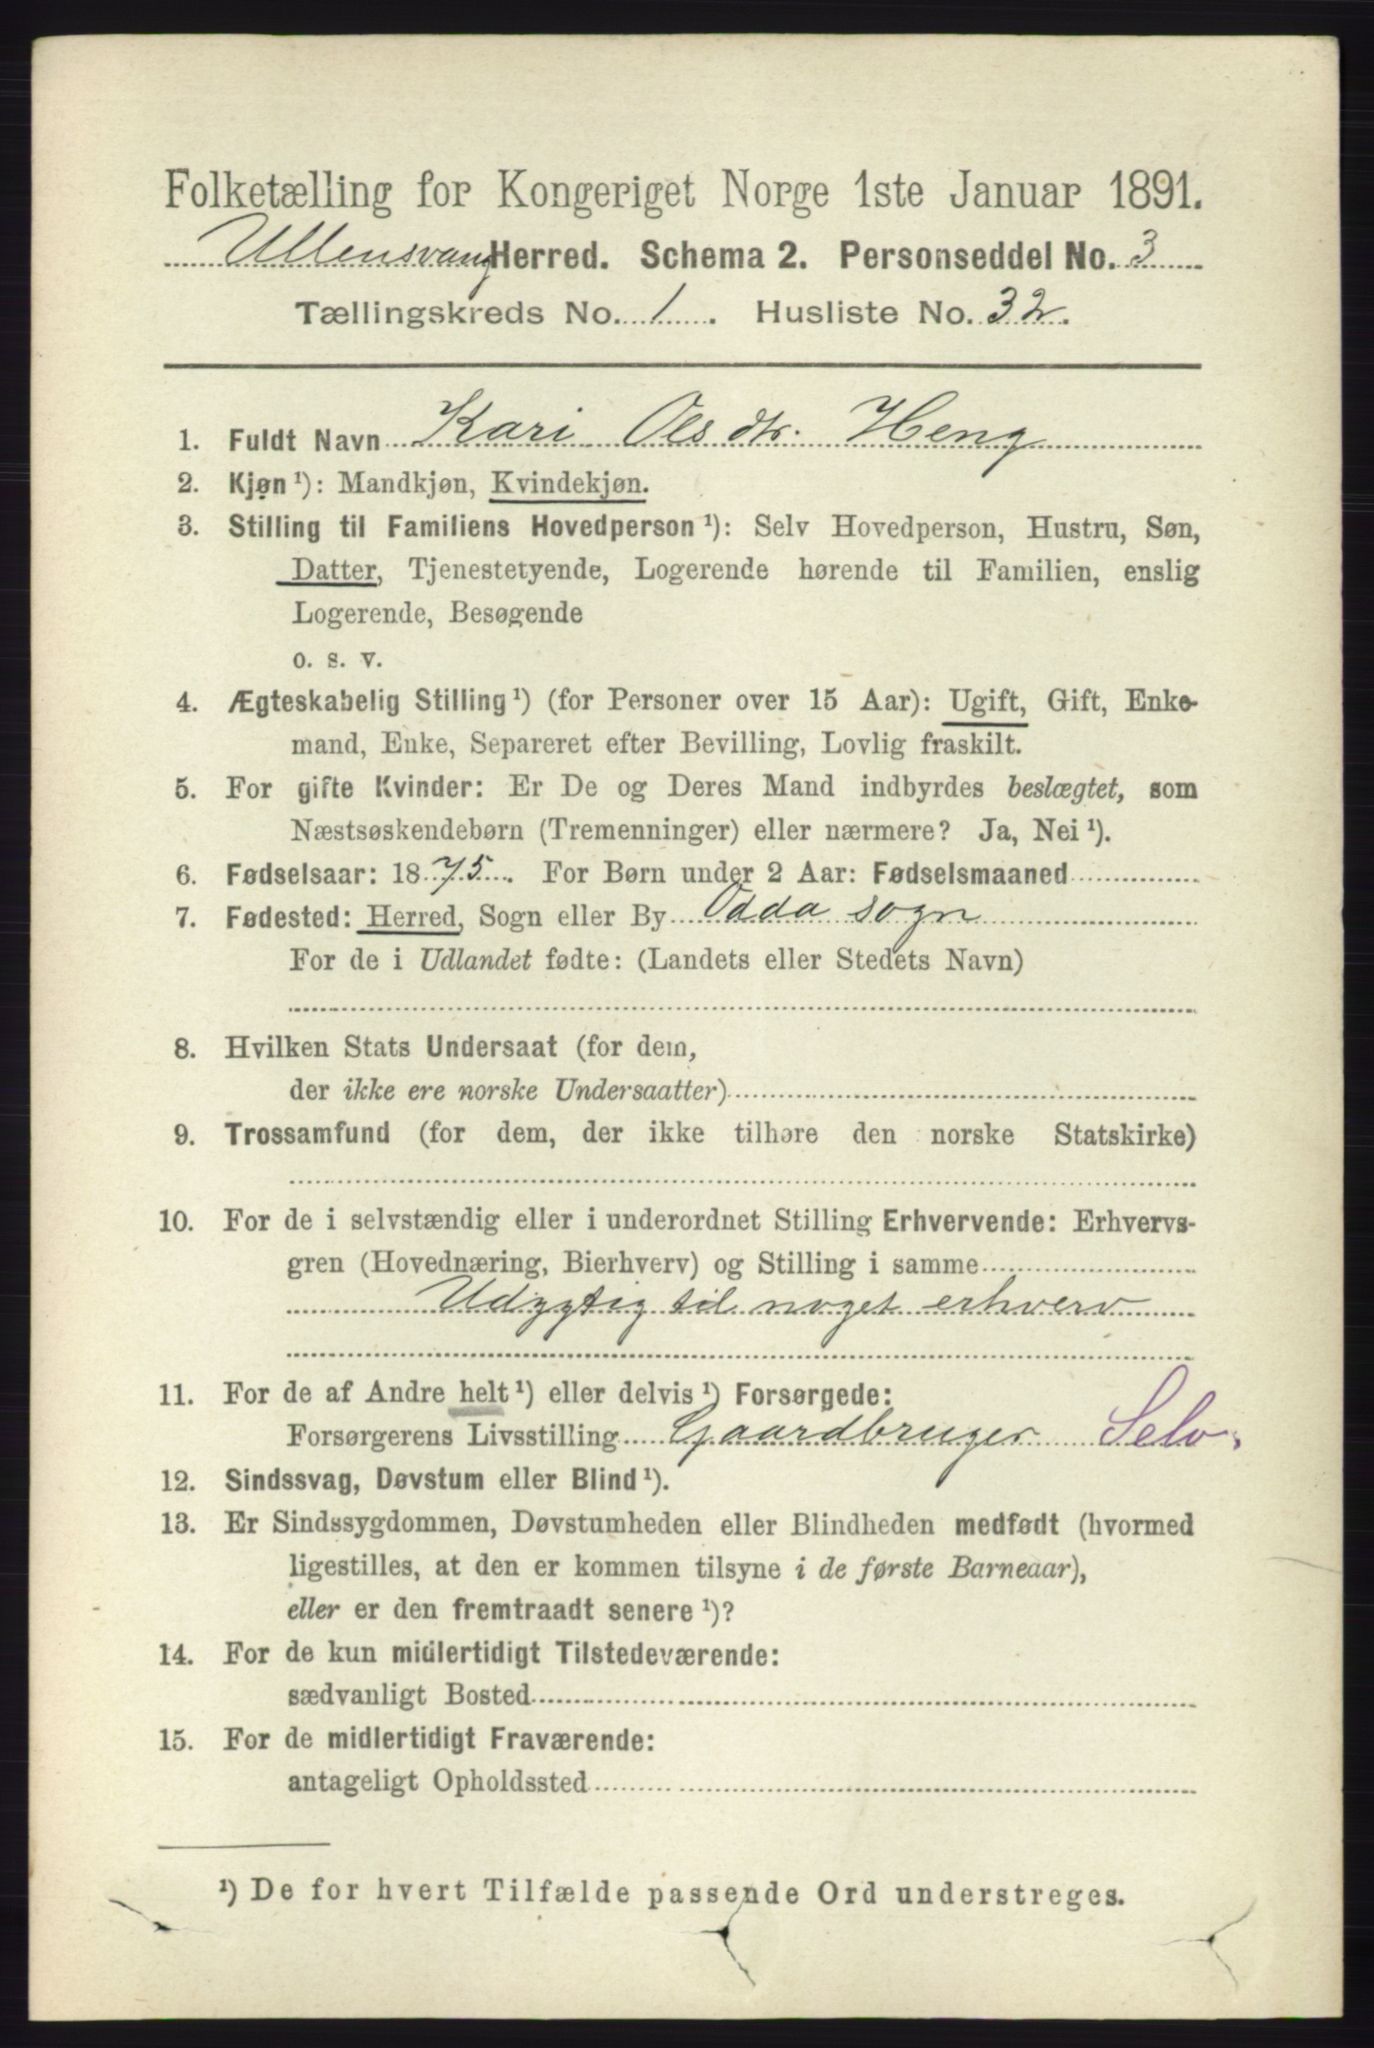 Folketælling for Kongeriget Norge 1ste Januar 1891.
Ullensvang Herred. Schema 2. Personseddel No. 3
Tællingskreds No. 1. Husliste No. 32.
1. Fuldt Navn Kari Olsdtr. Heng
2. Kjøn ¹): Mandkjøn, Kvindekjøn.
3. Stilling til Familiens Hovedperson ¹): Selv Hovedperson, Hustru, Søn,
Datter, Tjenestetyende, Logerende hørende til Familien, enslig
Logerende, Besøgende
o. s. v.
4. Ægteskabelig Stilling ¹) (for Personer over 15 Aar): Ugift, Gift, Enke-
mand, Enke, Separeret efter Bevilling, Lovlig fraskilt.
5. For gifte Kvinder: Er De og Deres Mand indbyrdes beslægtet, som
Næstsøskendebørn (Tremenninger) eller nærmere? Ja, Nei ¹).
6. Fødselsaar: 1875. For Børn under 2 Aar: Fødselsmaaned
7. Fødested: Herred, Sogn eller By Odda sogn
For de i Udlandet fødte: (Landets eller Stedets Navn)
8. Hvilken Stats Undersaat (for dem,
der ikke ere norske Undersaatter)
9. Trossamfund (for dem, der ikke tilhøre den norske Statskirke)
10. For de i selvstændig eller i underordnet Stilling Erhvervende: Erhvervs-
gren (Hovednæring, Bierhverv) og Stilling i samme
Udygtig til noget erhverv
11. For de af Andre helt ¹) eller delvis ¹) Forsørgede:
Forsørgerens Livsstilling Gaardbruger Selv.
12. Sindssvag, Døvstum eller Blind ¹).
13. Er Sindssygdommen, Døvstumheden eller Blindheden medfødt (hvormed
ligestilles, at den er kommen tilsyne i de første Barneaar),
eller er den fremtraadt senere ¹)?
14. For de kun midlertidigt Tilstedeværende:
sædvanligt Bosted
15. For de midlertidigt Fraværende:
antageligt Opholdssted
¹) De for hvert Tilfælde passende Ord understreges.